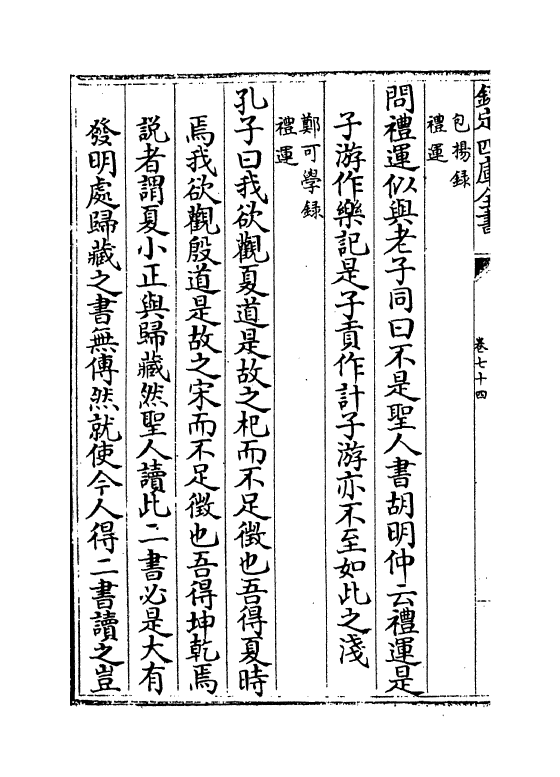 欽定四庫全書
卷七十四
包揚録
禮運
問禮運似與老子同曰不是聖人書胡明仲云禮運是
子游作樂記是子貢作計子游亦不至如此之淺
鄭可學録
禮運
孔子曰我欲觀夏道是故之杞而不足徵也吾得夏時
焉我欲觀殷道是故之宋而不足徵也吾得坤乾焉
説者謂夏小正與歸藏然聖人讀此二書必是大有
發明處歸藏之書無傳然就使今人得二書讀之豈